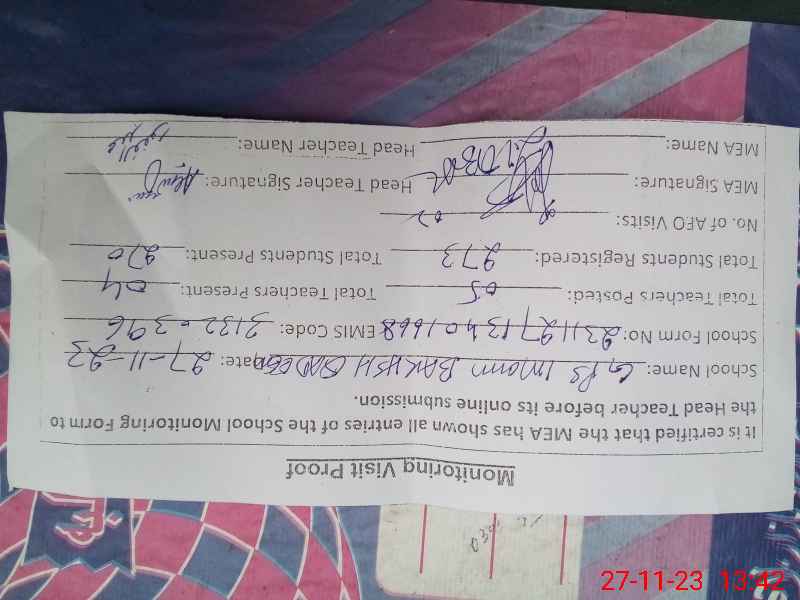 Monitoring Visit Proof
It is certified that the MEA has shown all entries of the School Monitoring Form to
the Head Teacher before its online submission.
School Name: GPS Imam BAKHSH Date: 27-11-23
School Form No: EMIS Code:
Total Teachers Posted: 05 Total Teachers Present: 04
Total Students Registered: 273 Total Students Present: 270
No. of AEO Visits: 02
MEA Signature: Head Teacher Signature:
MEA Name: Head Teacher Name:
27-11-23 13:42